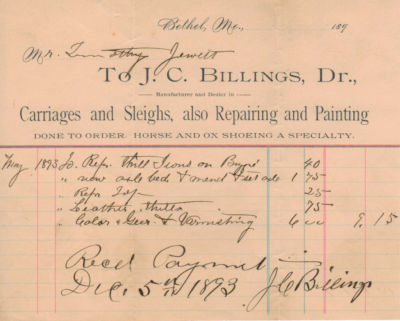 Bethel, Me., 189
Mr. Timothy Jewett
To J. C. BILLINGS, Dr.,
Manufacturer and Dealer in
Carriages and Sleighs, also Repairing and Painting
DONE TO ORDER. HORSE AND OX SHOEING A SPECIALTY.
May 1893 To Repr thill Irons on 40
" new axle bed & mend 1 75
Repr 25
" Leather thills 75
" Color & Varnishing 6 00 9.15
Recd Payment
Dec. 5th 1893 J C Billings